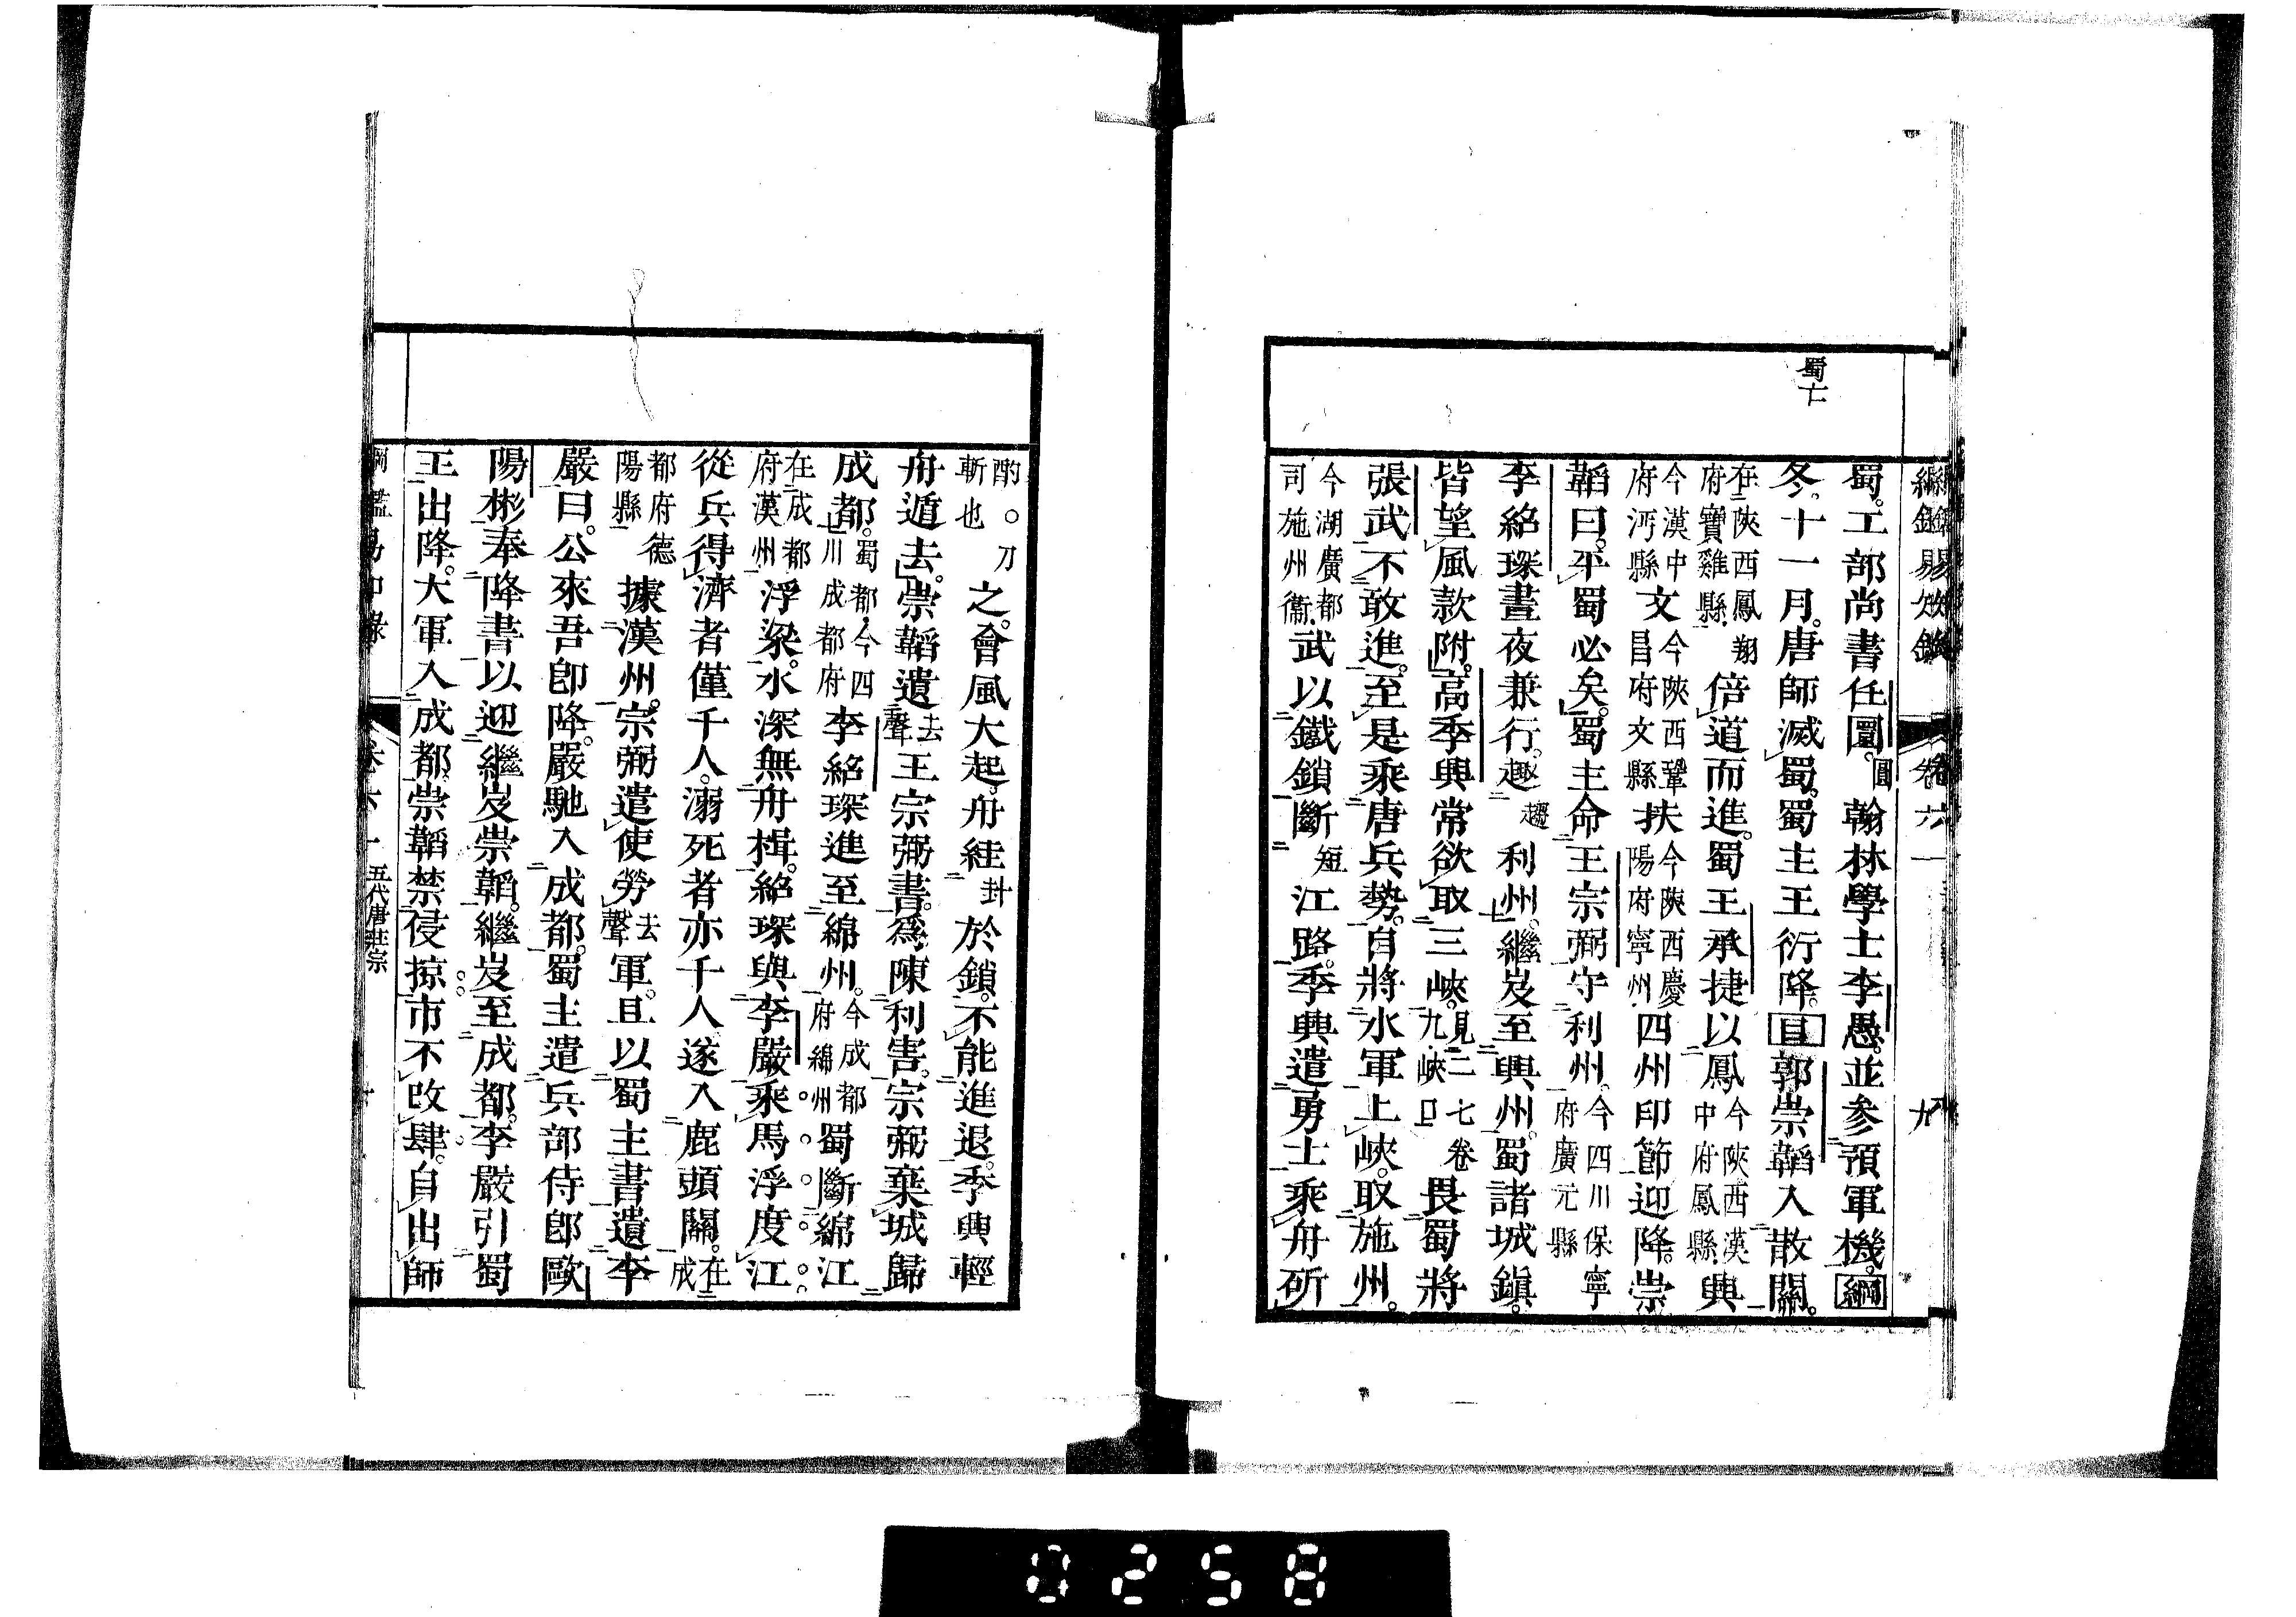 蜀亡
蜀。工部尚書任圜。圓翰林學士李愚。並參預軍機。綱
冬。十一月。唐師滅蜀。蜀主王衍降。目郭崇韜入散關。
在陝西鳳翔府寶雞縣倍道而進。蜀王承捷以鳳今陝西漢中府鳳縣興
今漢中府沔縣文今陝西鞏昌府文縣扶今陝西慶陽府寧州四州印節迎降。崇
韜曰。平蜀必矣。蜀主命王宗弼守利州。今四川保寧府廣元縣
李紹琛晝夜兼行。趣趨利州。繼岌至興州。蜀諸城鎮。
皆望風款附。高季興常欲取三峽。見二七卷九峽口畏蜀將
張武不敢進。至是乘唐兵勢。自將水軍上峽。取施州。
今湖廣都司施州衞武以鐵鎖斷短江路。季興遣勇士乘舟斫
酌。刀斬也之。會風大起。舟絓卦於鎖。不能進退。季興輕
舟遁去。崇韜遺去聲王宗弼書。爲陳利害。宗弼棄城歸
成都。蜀都今四川成都府李紹琛進至綿州。今成都府綿州蜀斷綿江
在成都府漢州浮梁。水深無舟楫。紹琛與李嚴乘馬浮度江
從兵得濟者僅千人。溺死者亦千人遂入鹿頭關。在成
都府德陽縣據漢州。宗弼遣使勞去聲軍。且以蜀主書遺李
嚴曰。公來吾卽降。嚴馳入成都。蜀主遣兵部侍郎歐
陽彬奉降書以迎繼岌崇韜。繼岌至成都。李嚴引蜀
王出降。大軍入成都。崇韜禁侵掠。市不改肆。自出師
卷六 五代唐莊宗